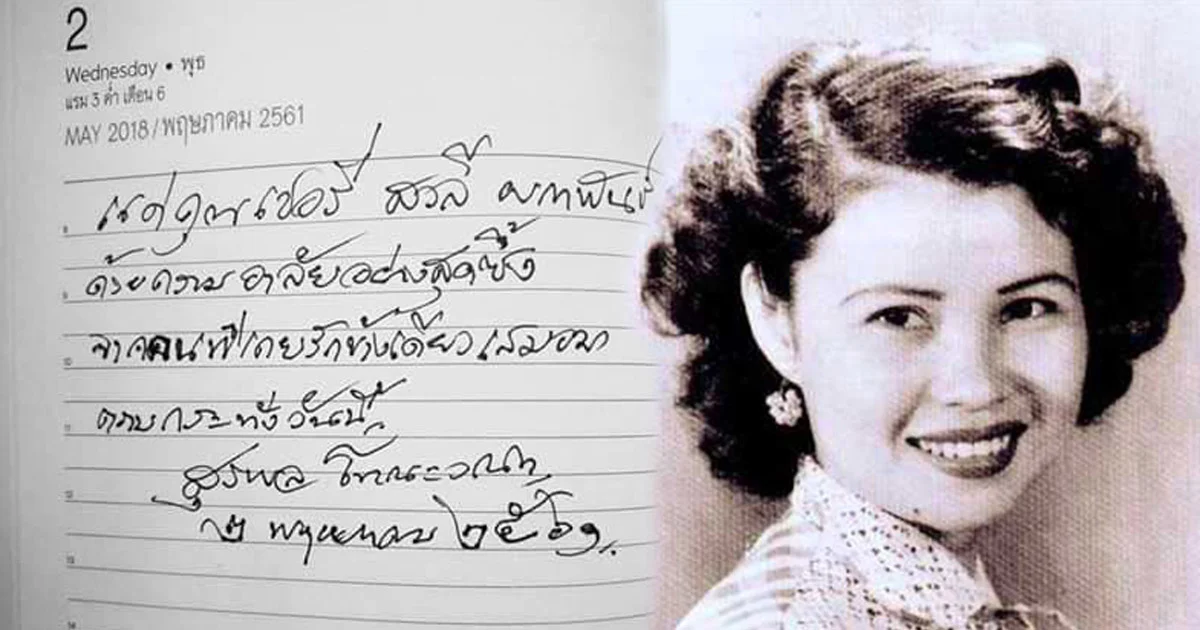 2
Wednesday • พุธ
แรม 3 ค่ำ เดือน 6
MAY 2018 / พฤษภาคม 2561
แด่คุณเชอรี่ สวลี ผกาพันธุ์
8
ด้วยความอาลัยอย่างสุดซึ้ง
9
จากคนที่เคยรักข้างเดียวเสมอมา
10
ตราบกระทั่งวันนี้
11
สุรพล โทณะวณิก
12
๒ พฤษภาคม ๒๕๖๑
13
14